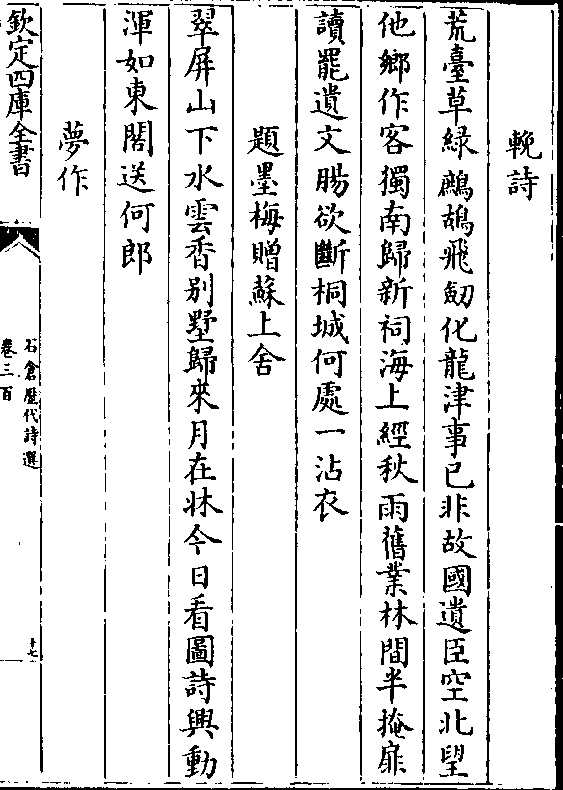 輓詩
荒臺草綠鷓鴣飛劒化龍津事已非故國遺臣空北望
他鄉作客獨南歸新祠海上經秋雨舊業林間半掩扉
讀罷遺文腸欲斷桐城何處一沾衣
題墨梅贈蘇上舍
翠屏山下水雲香别墅歸來月在牀今日看圖詩興動
渾如東閣送何郎
夢作
欽定四庫全書
石倉歴代詩選
卷三百
十七